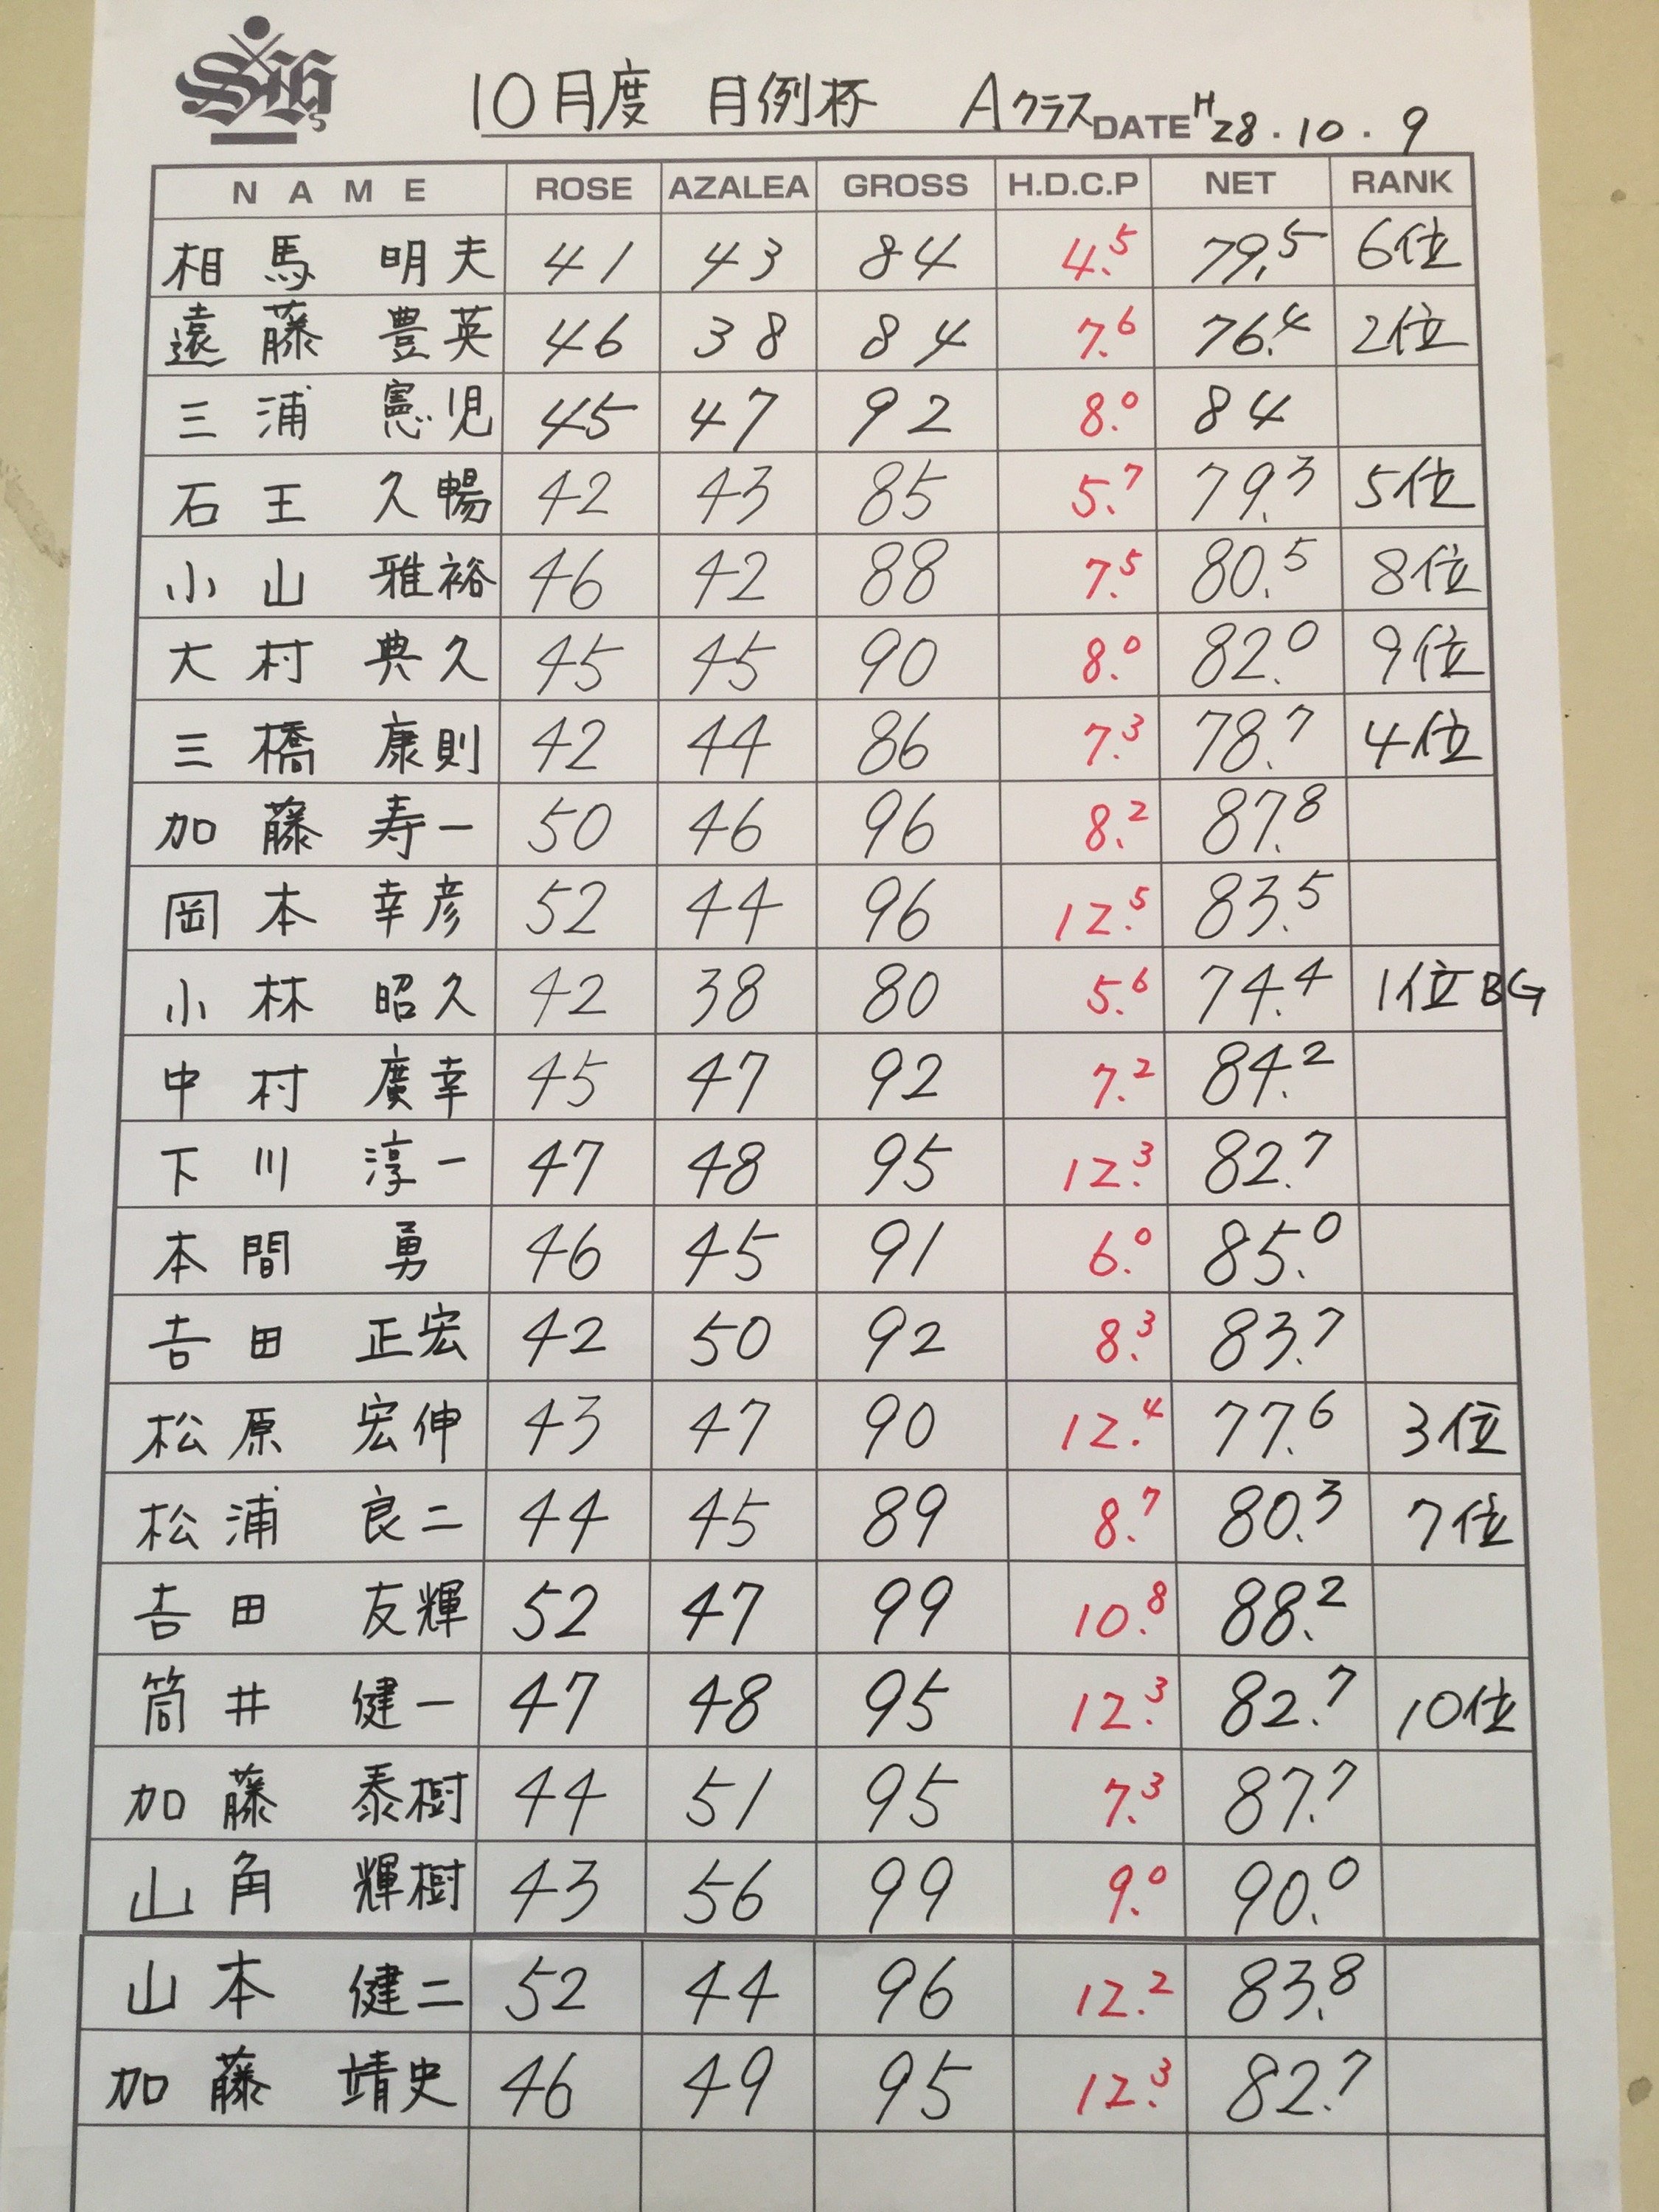 SHG
10月度 月例杯 Aクラス DATE H28.10.9
NAME ROSE AZALEA GROSS H.D.C.P NET RANK
相馬 明夫 41 43 84 4.5 79.5 6位
遠藤 豊英 46 38 84 7.6 76.4 2位
三浦 憲児 45 47 92 8.0 84
石王 久暢 42 43 85 5.7 79.3 5位
小山 雅裕 46 42 88 7.5 80.5 8位
大村 典久 45 45 90 8.0 82.0 9位
三橋 康則 42 44 86 7.3 78.7 4位
加藤 寿一 50 46 96 8.2 87.8
岡本 幸彦 52 44 96 12.5 83.5
小林 昭久 42 38 80 5.6 74.4 1位 BG
中村 廣幸 45 47 92 7.2 84.2
下川 淳一 47 48 95 12.3 82.7
本間 勇 46 45 91 6.0 85.0
吉田 正宏 42 50 92 8.3 83.7
松原 宏伸 43 47 90 12.4 77.6 3位
松浦 良二 44 45 89 8.7 80.3 7位
吉田 友輝 52 47 99 10.8 88.2
筒井 健一 47 48 95 12.3 82.7 10位
加藤 泰樹 44 51 95 7.3 87.7
山角 輝樹 43 56 99 9.0 90.0
山本 健二 52 44 96 12.2 83.8
加藤 靖史 46 49 95 12.3 82.7